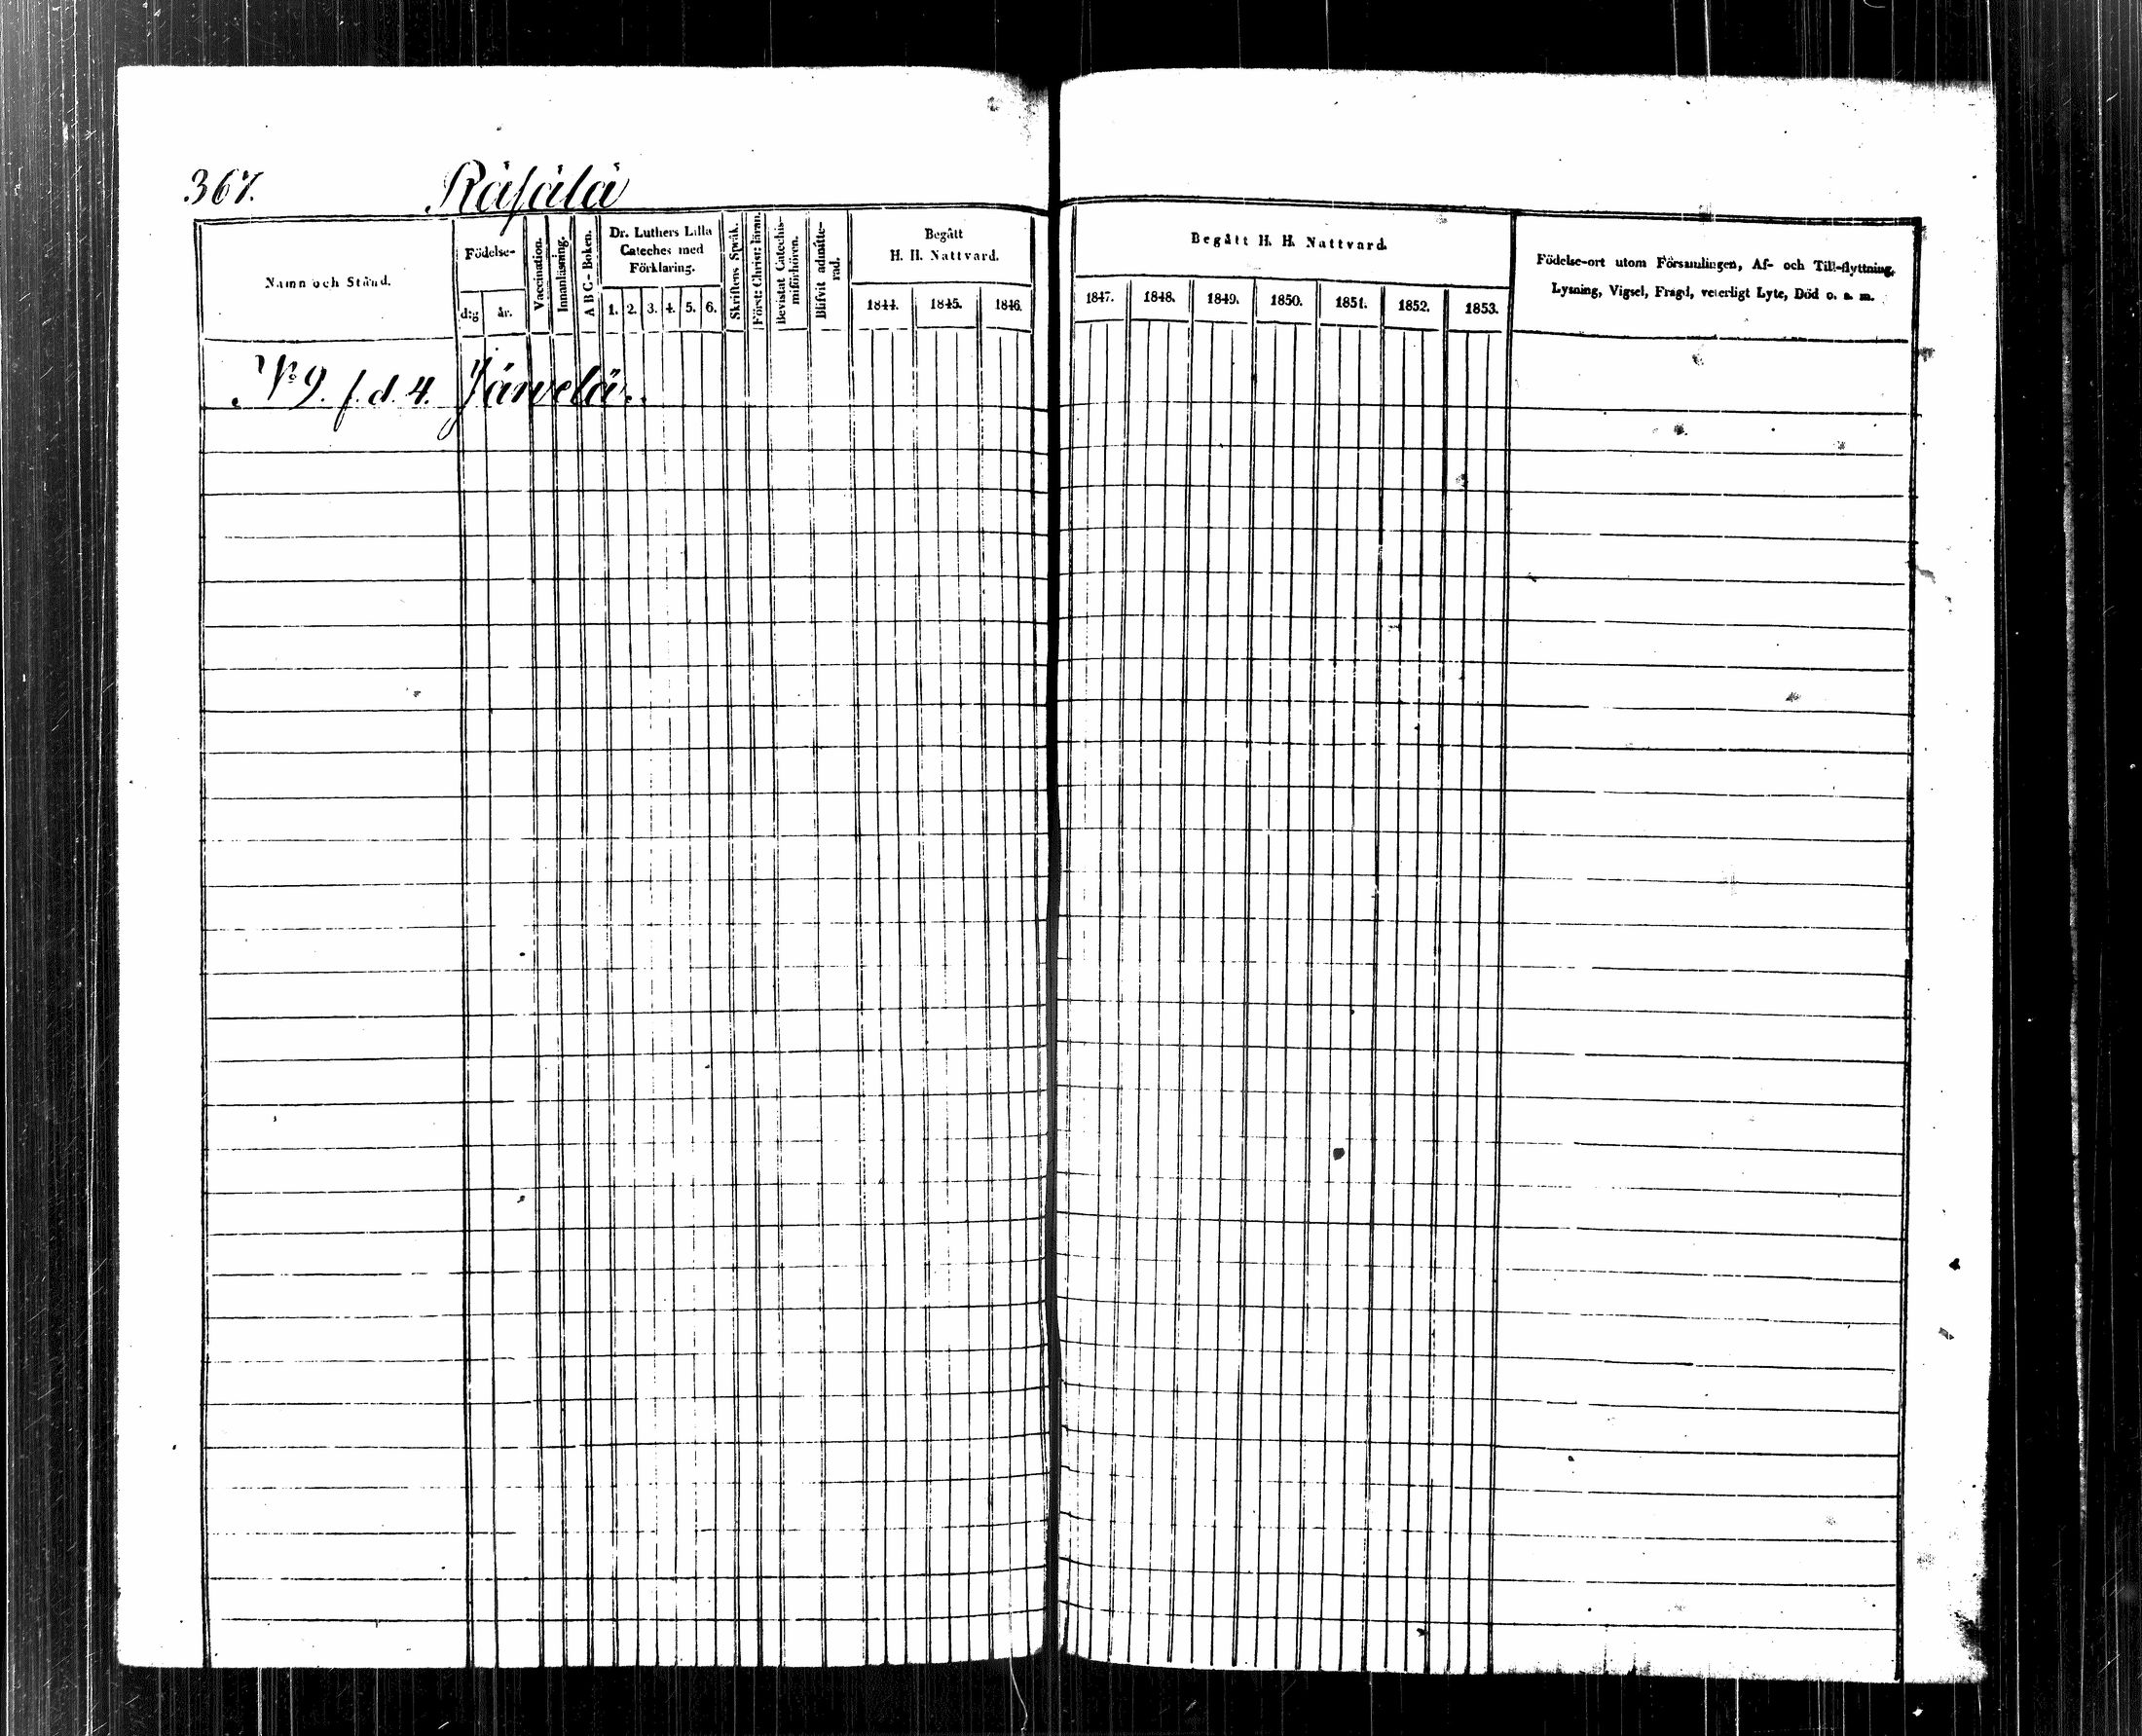 367. Räfälä
Namn och Stånd.
Födelse-
dag
år.
Vaccination.
Innanläsning.
ABC-Boken.
Dr. Luthers Lilla
Cateches med
Förklaring.
1. 2. 3. 4. 5. 6.
Skriftens Språk.
Först: Christ: läran.
Bevistat Catechis-
miförhören.
Blifvit admitte-
rad.
Begått
H. H. Nattvard.
1844. 1845. 1846.
Begått H. H. Nattvard.
1847. 1848. 1849. 1850. 1851. 1852. 1853.
Födelse-ort utom Församlingen, Af- och Till-flyttning,
Lysning, Vigsel, Frägd, veterligt Lyte, Död o. s. m.
No 9. f. d. 4. Järvelä.